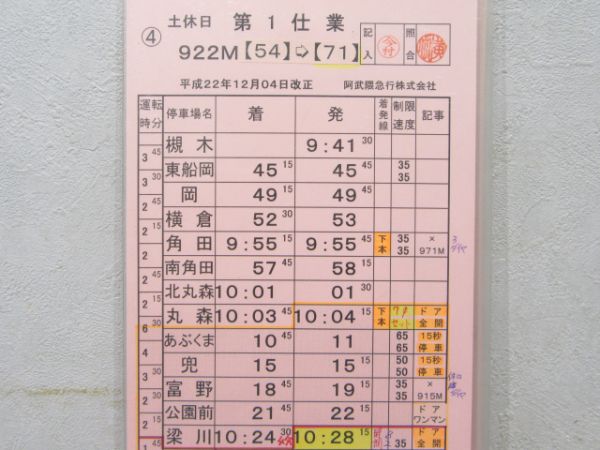 ④ 土休日 第1仕業 記入 照合
922M【54】⇨【71】
平成22年12月04日改正 阿武隈急行株式会社
運転時分 停車場名 着 発 着発線 制限速度 記事
槻木 9:41 30
3 45
東船岡 45 15 45 45 35 35
3 30
岡 49 15 49 45
2 45
横倉 52 30 53
2 15
角田 9:55 15 9:55 45 下本 35 35 × 971M
2
南角田 57 45 58 15
2 45
北丸森 10:01 01 30
2 15
丸森 10:03 45 10:04 15 下本 セット ドア全開
6 30
あぶくま 10 45 11 65 65 15秒停車
4
兜 15 15 15 50 50 15秒停車
3 30
富野 18 45 19 15 35 35 × 915M
2 30
公園前 21 45 22 15 ドアワンマン
2 15
梁川 10:24 30 10:28 15 35 ドア全開